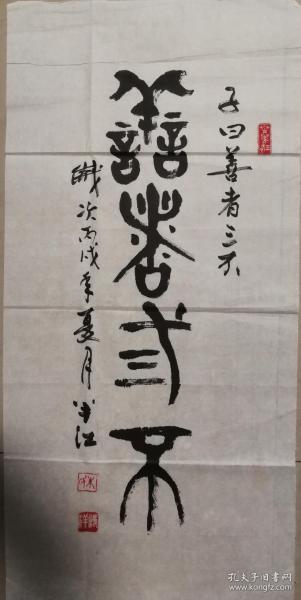 子曰善者三不
善者弎不
岁次丙戌年夏月
孔夫子旧书网
www.kongfz.com